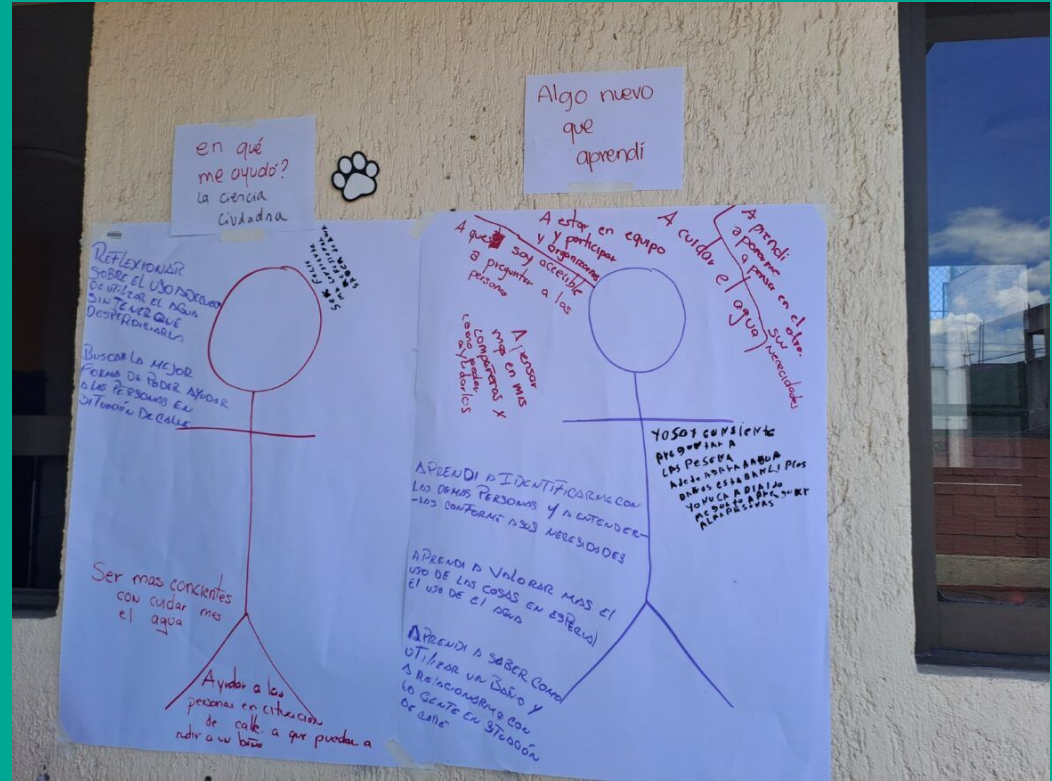 en qué
me ayudó?
La ciencia
Ciudadna
REFLEXIONAR
SOBRE EL USO ADECUADO
DE UTILIZAR EL AGUA
SIN TENER QUE
DESPERDICIARLA
BUSCAR LA MEJOR
FORMA DE PODER AYUDAR
A LAS PERSONAS EN
SITUACIÓN DE CALLE
SER
Ser mas concientes
con cuidar mas
el agua
Ayudar a las
personas en cituacion
de calle. a que puedan a
cudir a un baño
Algo nuevo
que
aprendí
A que soy accesible
a preguntar a las
persona
A estar en equipo
y participar
y organizarnos
A cuidar el agua
Aprendi
a ponerme
a pensar en el otro.
sus
necesidades
A pensar
mas en mis
compañeras y
como poder
ayudarlos
YO SOY CONSIENTE
preguntar A
LAS PESENA
YO NUCA
ME GUSTO
ALAS PERSONAS
APRENDI A IDENTIFICARME CON
LAS DEMAS PERSONAS Y A ENTENDER-
-LAS CONFORME A SUS NECESIDADES
APRENDI A VALORAR MAS EL
USO DE LAS COSAS EN ESPECIAL
EL USO DE EL AGUA
APRENDI A SABER COMO
UTILIZAR UN BAÑO Y
A RELACIONARME CON
LA GENTE EN SITUACIÓN
DE CALLE